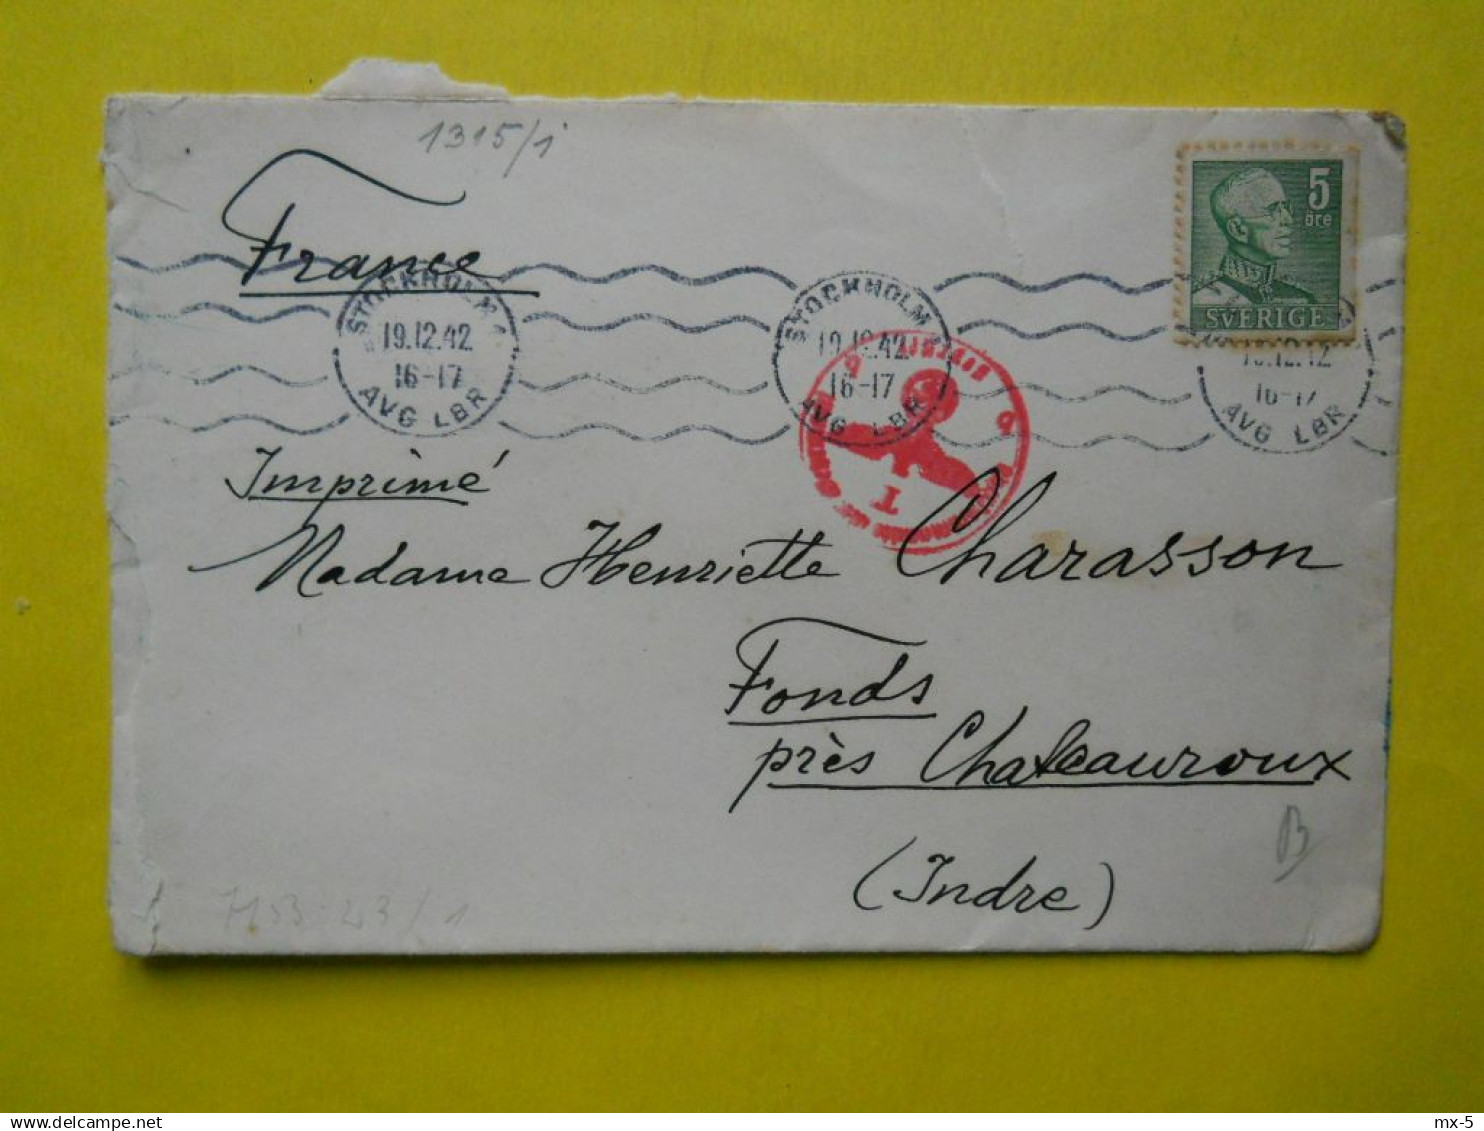 1315/1
France
5
öre
SVERIGE
STOCKHOLM 1
19.12.42
16-17
AVG LBR
STOCKHOLM
19.12.42
16-17
AVG LBR
16-17
AVG LBR
Imprimé
Madame Henriette Charasson
Fonds
près Chateauroux
(Indre)
B
delcampe.net
mx-5